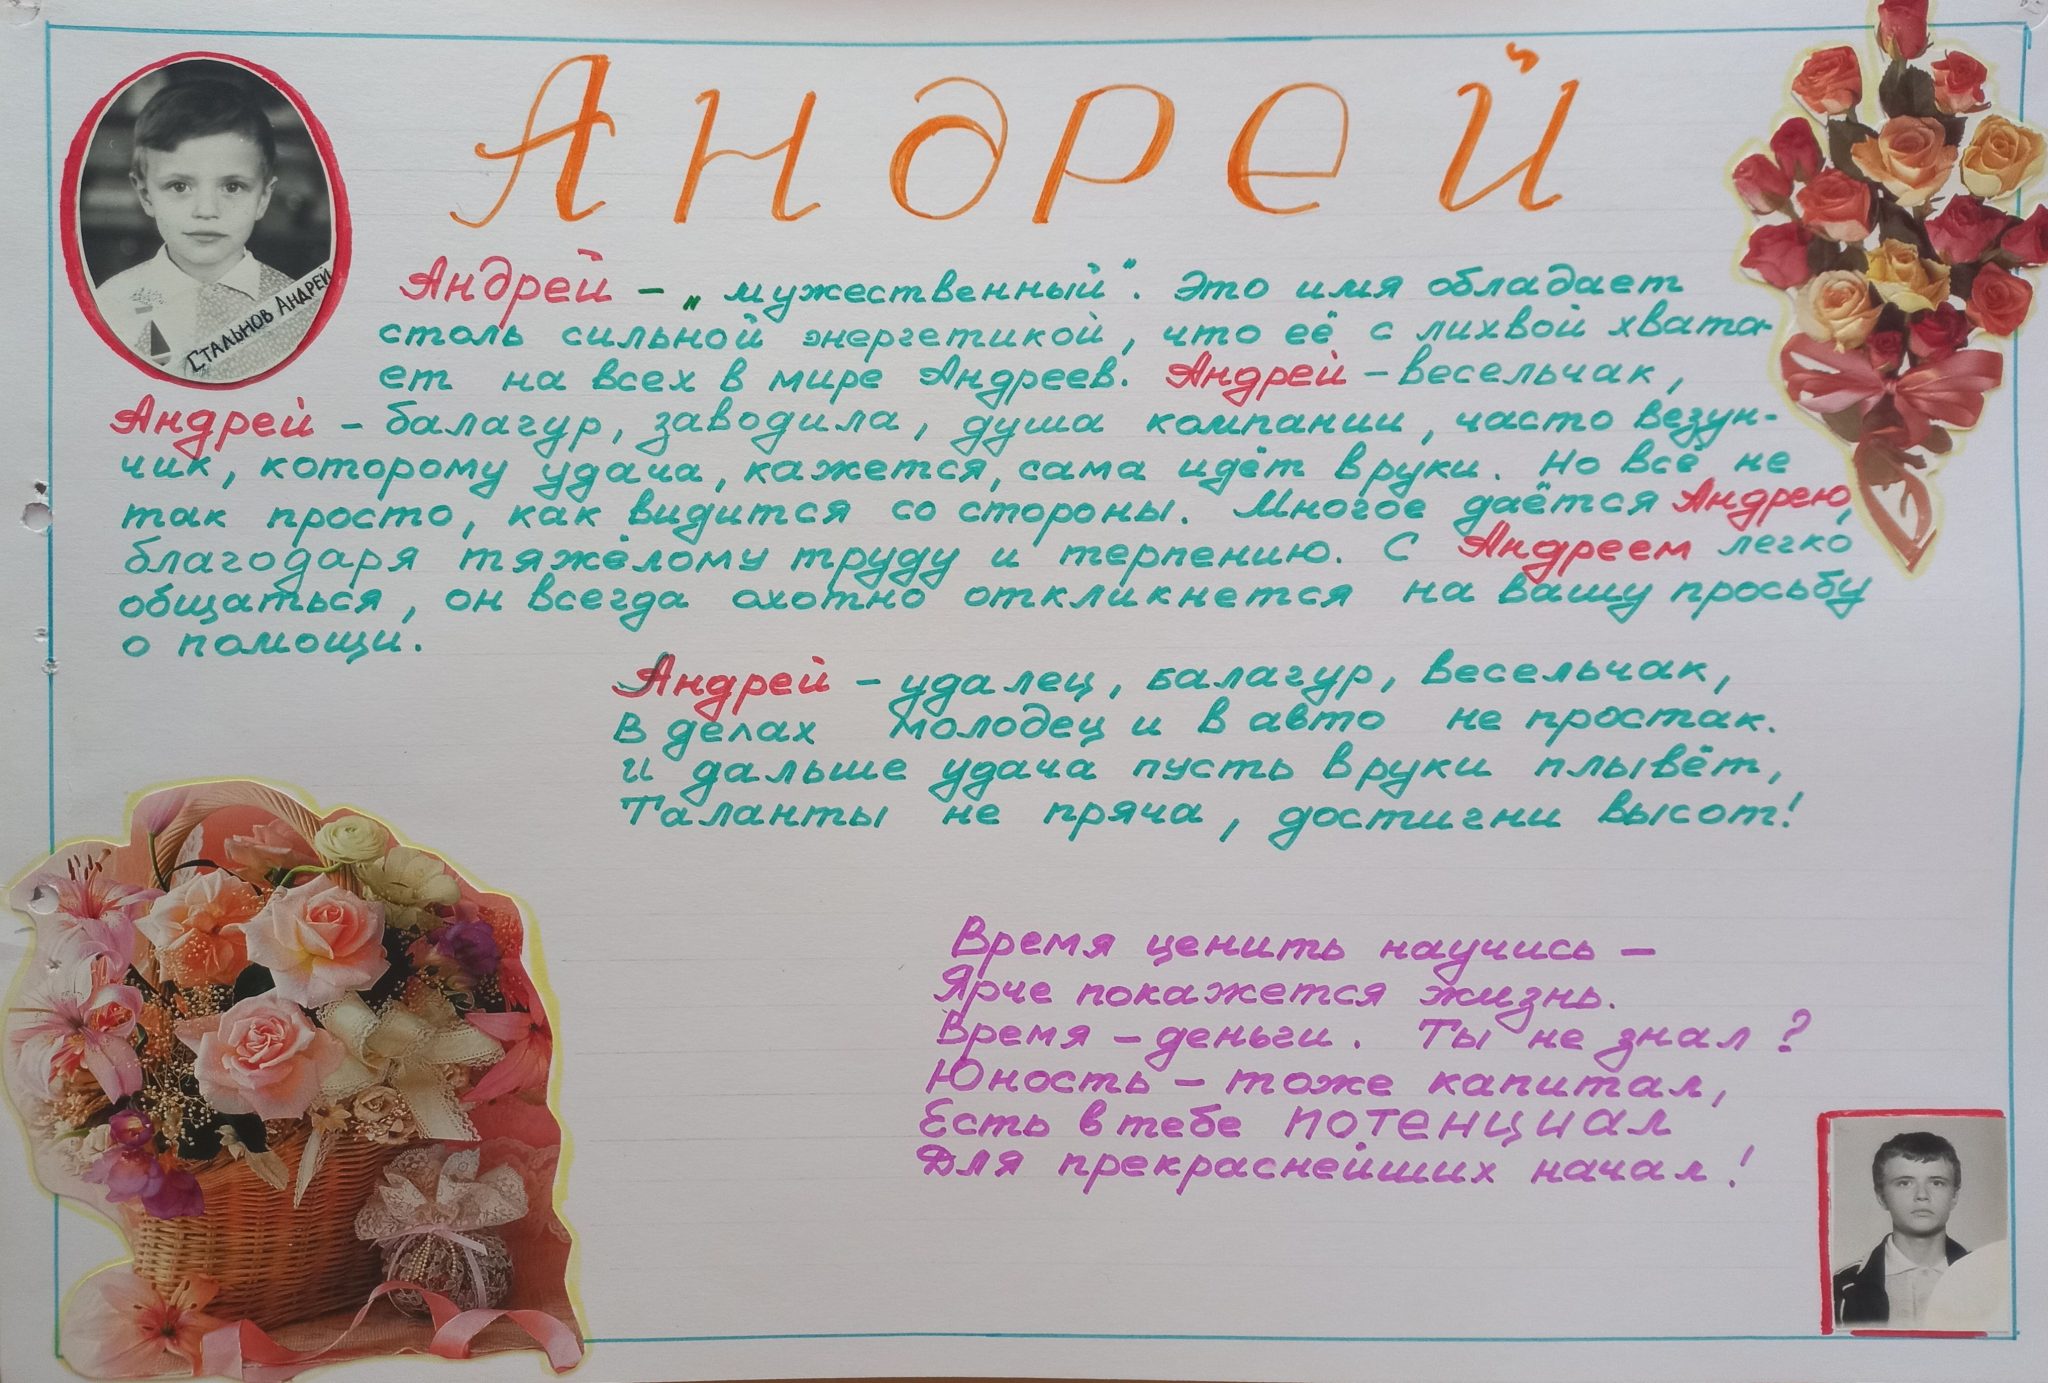 Андрей
Стальнов Андрей
Андрей – „мужественный". Это имя обладает
столь сильной энергетикой, что её с лихвой хвата-
ет на всех в мире Андреев. Андрей – весельчак,
Андрей – балагур, заводила, душа компании, часто везун-
чик, которому удача, кажется, сама идёт в руки. Но всё не
так просто, как видится со стороны. Многое даётся Андрею,
благодаря тяжёлому труду и терпению. С Андреем легко
общаться, он всегда охотно откликнется на вашу просьбу
о помощи.
Андрей – удалец, балагур, весельчак,
В делах молодец и в авто не простак.
И дальше удача пусть в руки плывёт,
Таланты не пряча, достигни высот!
Время ценить научись –
Ярче покажется жизнь.
Время – деньги. Ты не знал?
Юность – тоже капитал,
Есть в тебе потенциал
Для прекраснейших начал!